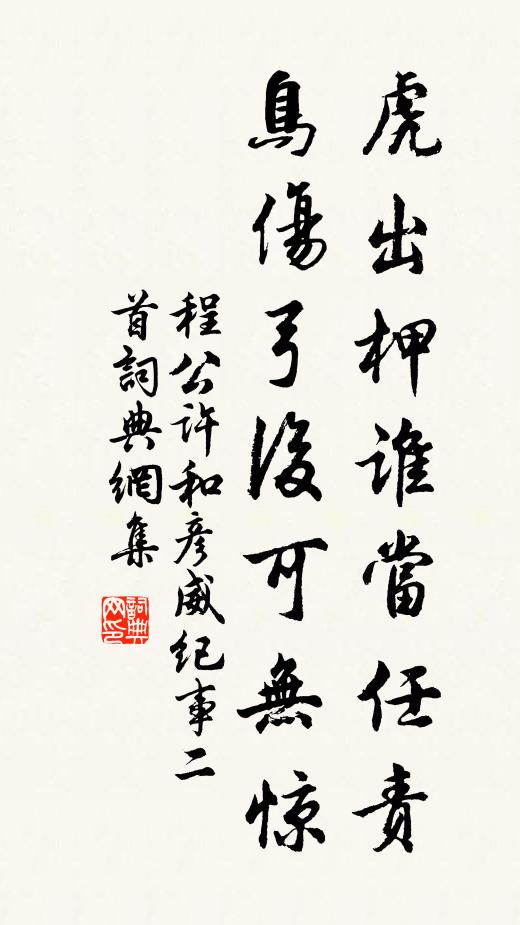 虎出柙谁當任责
鳥傷弓後可無惊
程公许和彦威纪事二
首詞典網集
詞典网印